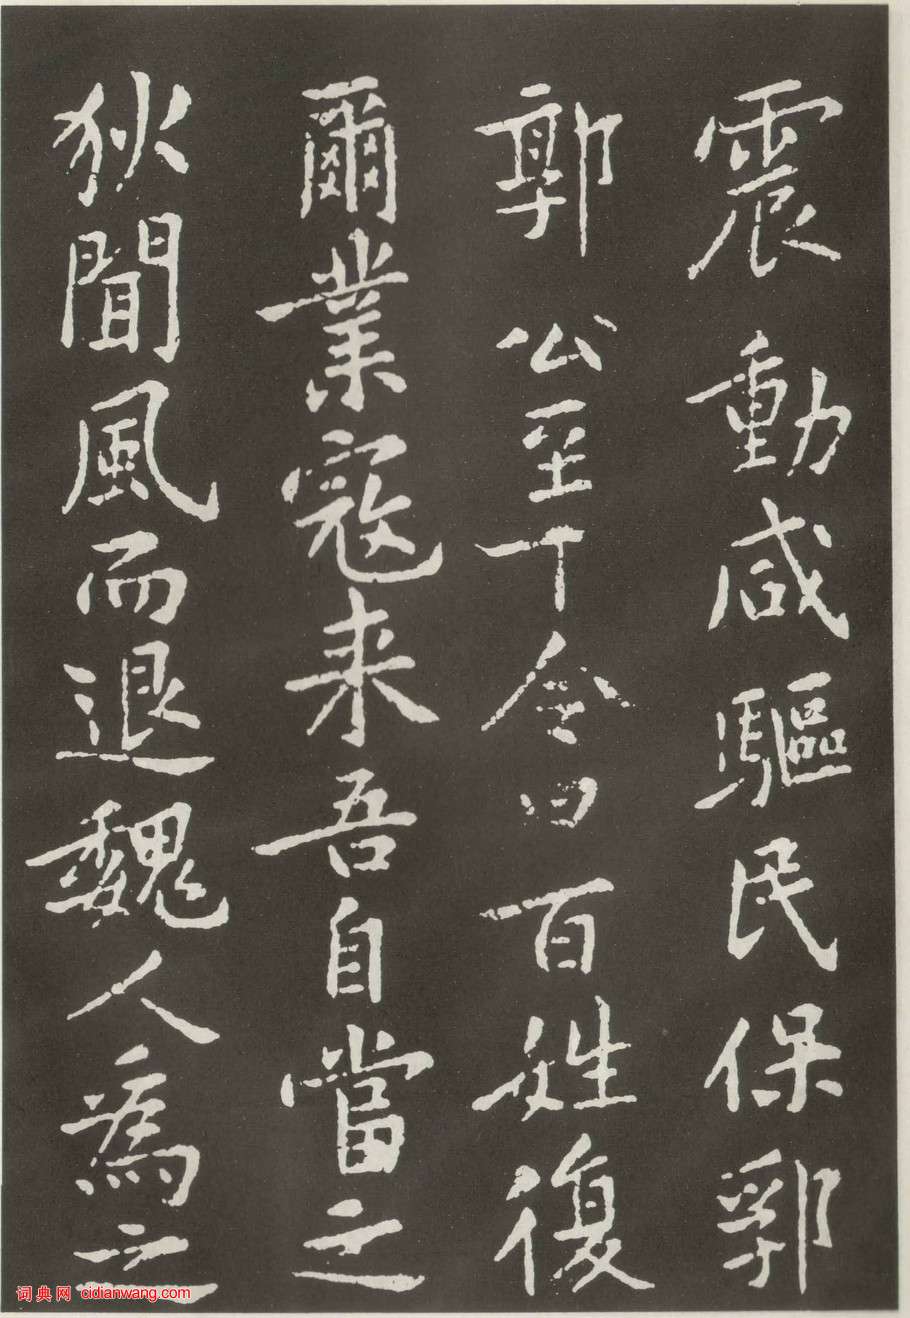 震動咸驅民保郭
郭公至下令曰百姓復
爾業寇来吾自當之
狄聞風而退魏人為之
词典网 cidianwang.com